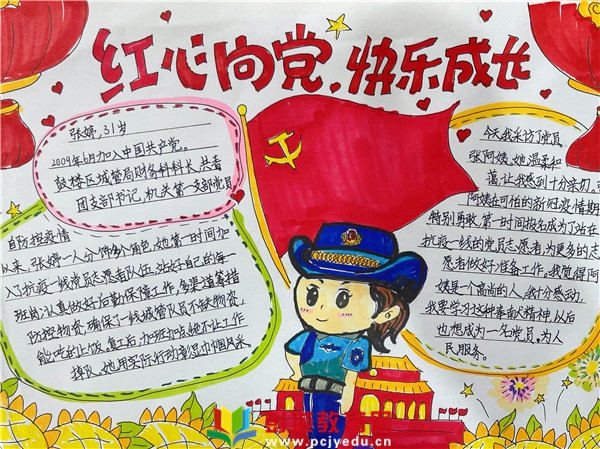 红心向党,快乐成长
张婷,31岁
2009年6月加入中国共产党。
鼓楼区城管局财务科科长 共青
团支部书记,机关第一支部党员
自防控疫情
以来,张婷一人分饰多角色,她第一时间加
入了抗疫一线党员志愿者队伍,站好自己的每一
班岗,认真做好后勤保障工作,多渠道筹措
防控物资,确保了一线城管队员不缺物资,
能吃上饭。复工后,加班加点她不让工作
掉队,她用实际行动彰显巾帼风采
今天我采访了党员
张阿姨,她温柔和
蔼,让我感到十分亲切。张
阿姨在可怕的新冠疫情期
特别勇敢,第一时间报名成为了站在
抗疫一线的党员志愿者,为更多的志
愿者做好准备工作,我觉得阿
姨是一个高尚的人,我十分感动,
我要学习这种奉献精神,以后
也想成为一名党员。为人
民服务。
www.pcjyedu.cn